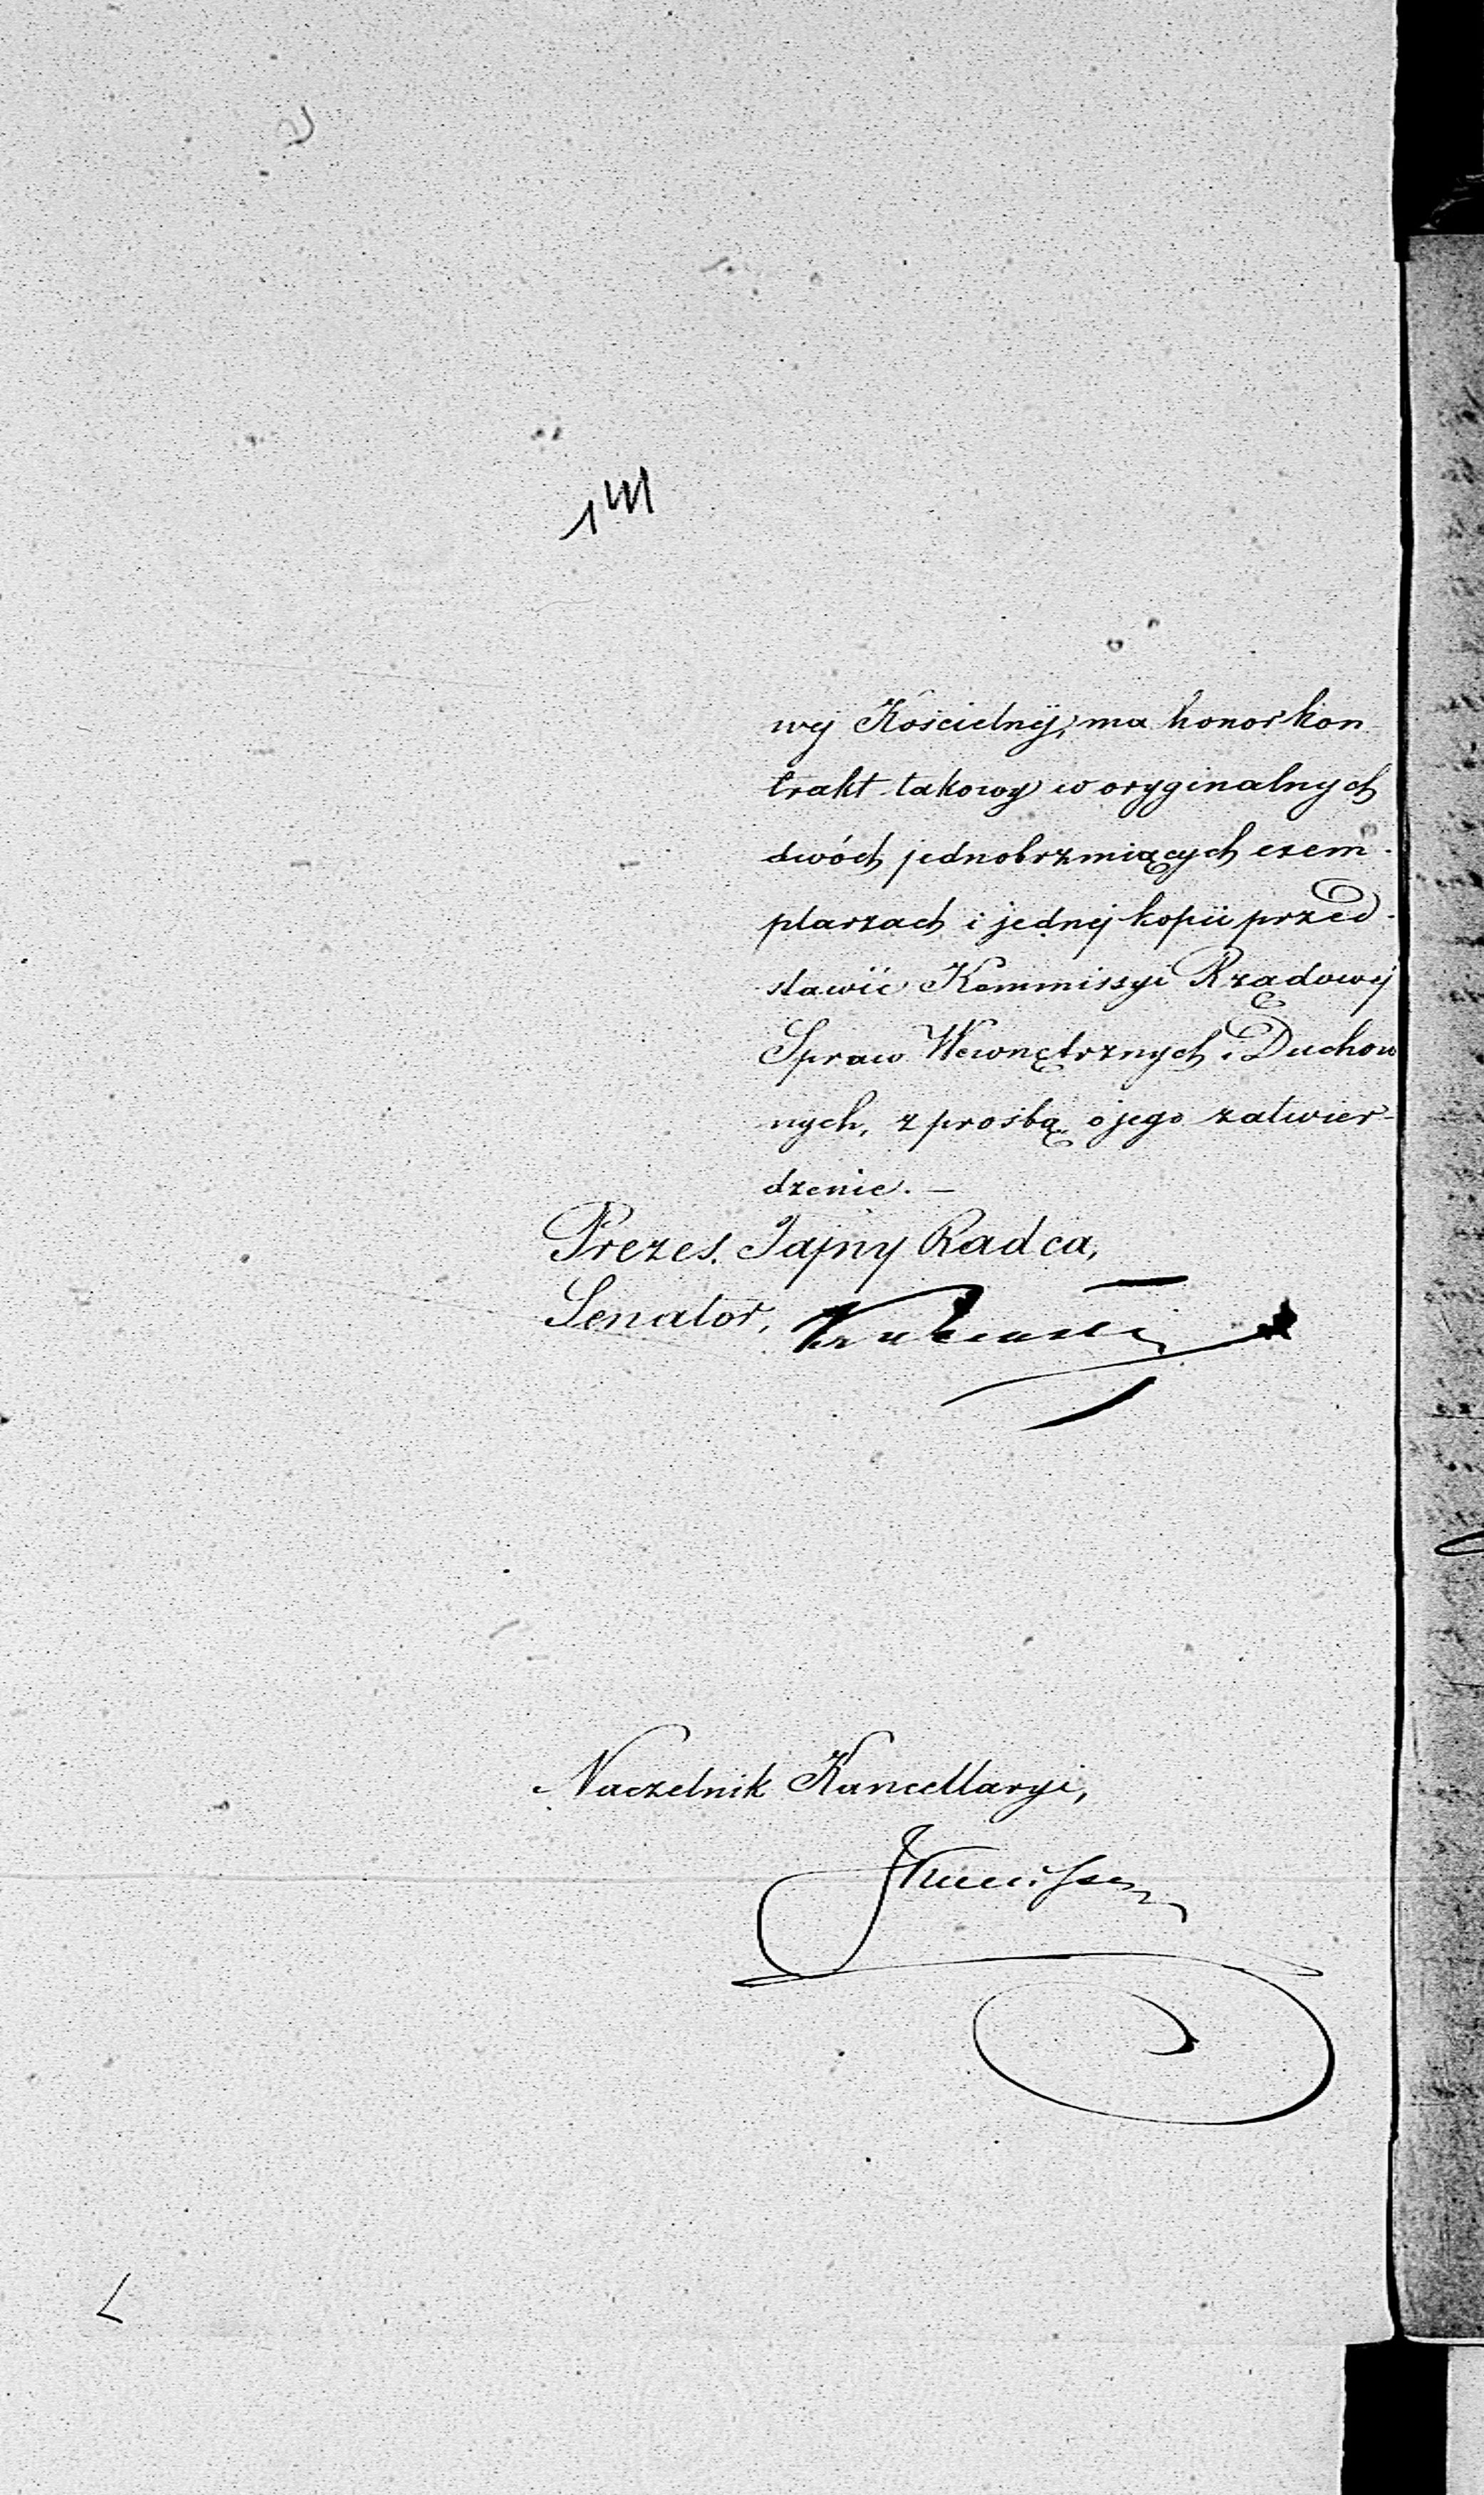 wej Kościelnéj, ma honor kon
trakt takowy w oryginalnych
dwóch jednobrzmiących exem-
plarzach i jednej kopii przed-
stawić Kommissyi Rządowej
Spraw Wewnętrznych i Duchow
nych, z prośbą o jego zatwier-
dzenie. —
Prezes. Tajny Radca,
Senator,
Naczelnik Kancellaryi,